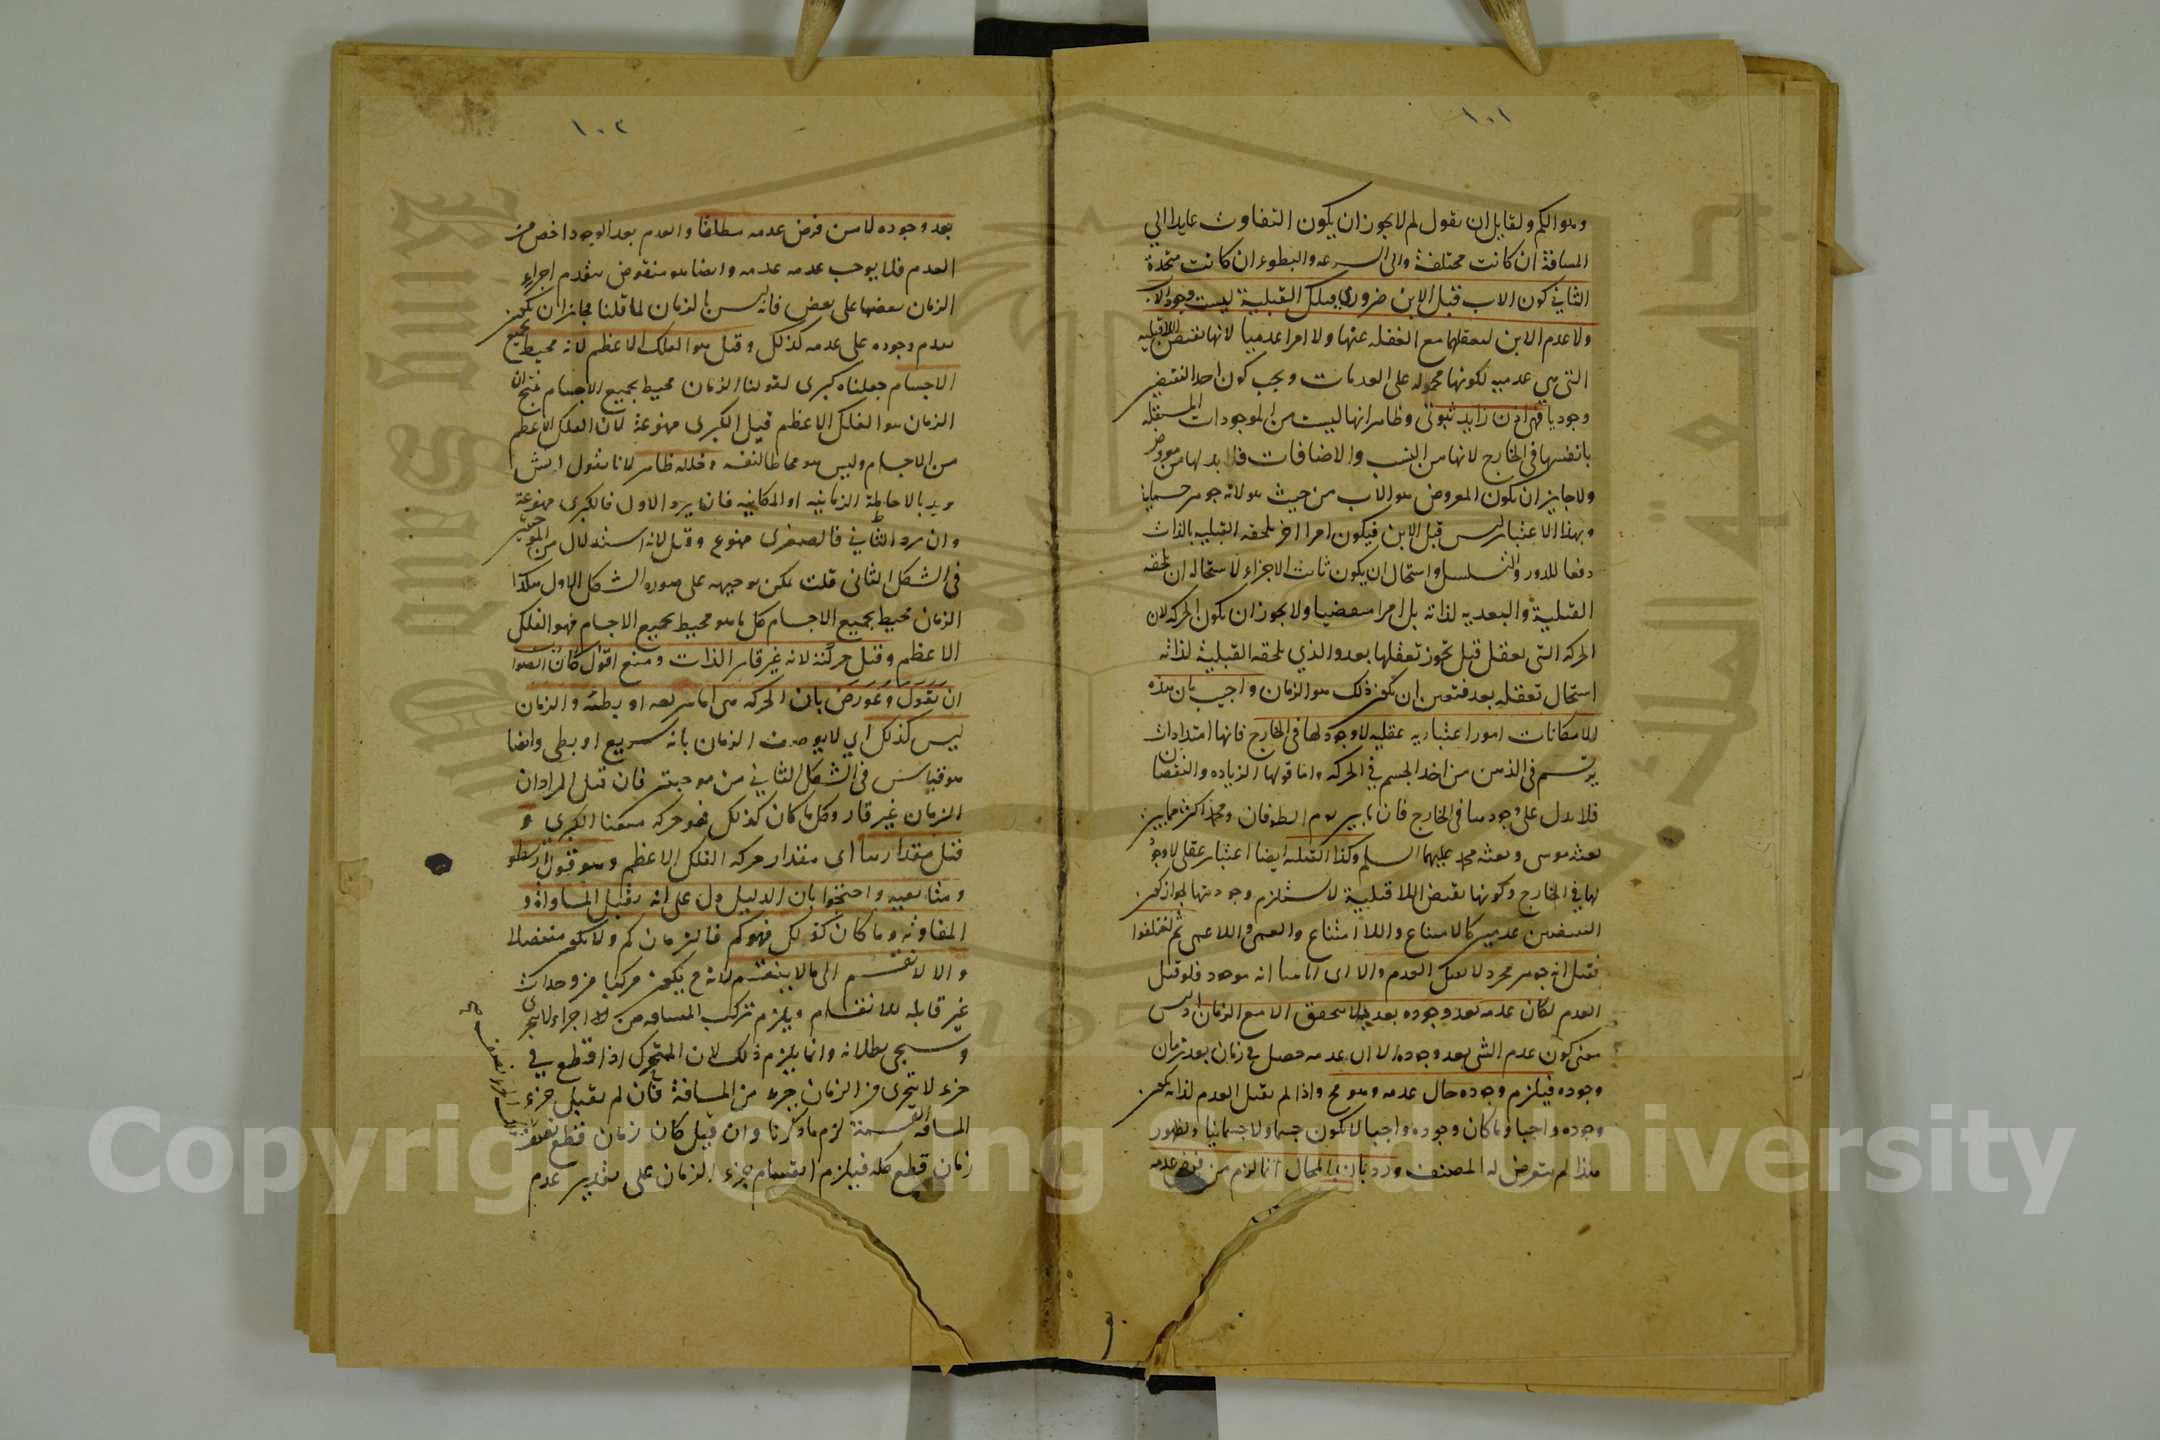 ١٠١
وهو الكم ولقايل ان يقول لم لا يجوز ان يكون التفاوت عايدا الي
المسافة ان كانت مختلفة والى السرعه والبطوء ان كانت متحدة
الثاني كون الاب قبل الابن ضروري فتلك القبلية ليست وجود الاب
ولا عدم الابن لتعقلهما مع الغفله عنها ولا امرا عدميا لانها نقيض اللاقبليه
التي هي عدميه لكونها محموله على العدمات ويجب كون احد النقيضين
وجوديا فهي اذن زايد ثبوتي وظاهر انها ليست من الموجودات المستقله
بانفسها في الخارج لانها من النسب والاضافات فلا بد لها من معروض
ولا جايز ان يكون المعروض هو الاب من حيث هو لانه جوهر جسماني
وبهذا الاعتبار ليس قبل الابن فيكون امرا اخر يلحقه القبليه بالذات
دفعا للدور والتسلسل واستحال ان يكون ثابت الاجزاء لاستحاله ان تلحقه
القبلية والبعديه لذاته بل امرا منقضيا ولا يجوز ان يكون الحركه لان
الحركه التي تعقل قبل يجوز تعقلها بعد والذي يلحقه القبلية لذاته
استحال تعقله بعد فتعين ان يكون ذلك هو الزمان واجيب بان هذه
الامكانات امور اعتباريه عقليه لا وجود لها في الخارج فانها امتدادات
يرتسم في الذهن من اخذ الجسم في الحركه واما قولها الزياده والنقصان
فلا يدل على وجودها في الخارج فان ما بين يوم الطوفان ومحمد اكثر مما بين
بعثه موسى وبعثه محمد عليهما السلم وكذا القبليه ايضا اعتبار عقلى لا وجود
لها في الخارج وكونها نقيض اللاقبلية لا يستلزم وجوديتها لجواز كون
النقيضين عدميين كالامتناع واللاامتناع والعمى واللاعمى ثم اختلفوا
فقيل انه جوهر مجرد لا يقبل العدم والا اى اما انه موجود فلو قبل
العدم لكان عدمه بعد وجوده بعديه لا يتحقق الا مع الزمان اذ ليس
معنى كون عدم الشى بعد وجوده الا ان عدمه حصل في زمان بعد زمان
وجوده فيلزم وجوده حال عدمه وهو مح واذا لم يقبل العدم لذاته يكون
وجوده واجبا وما كان وجوده واجبا لا يكون جسما ولا جسمانيا ولظهور
هذا لم يتعرض له المصنف ورد بان المحال انما لزم من فرض عدمه
١٠٢
بعد وجوده لا من فرض عدمه مطلقا والعدم بعد الوجود اخص من
العدم فلا يوجب عدمه عدمه وايضا هو منقوض بتقدم اجزاء
الزمان بعضها على بعض فانه ليس بالزمان لما قلنا فجاز ان يكون
تقدم وجوده على عدمه كذلك وقيل هو الفلك الاعظم لانه محيط بجميع
الاجسام جعلناه كبرى لقولنا الزمان محيط بجميع الاجسام ينتج ان
الزمان هو الفلك الاعظم قيل الكبرى ممنوعة لان الفلك الاعظم
من الاجسام وليس هو محاطا لنفسه وخلله ظاهر لانا نقول ايش
يريد بالاحاطة الزمانيه او المكانيه فان يرد الاول فالكبرى ممنوعة
وان يرد الثاني فالصغرى ممنوع وقيل لانه استدلال من الموجبتين
في الشكل الثانى قلت يمكن توجيهه على صوره الشكل الاول هكذا
الزمان محيط بجميع الاجسام كل ما هو محيط بجميع الاجسام فهو الفلك
الاعظم وقيل حركته لانه غير قار الذات ومنع اقول كان الصواب
ان يقول وعورض بان الحركه هي اما سريعه او بطئه والزمان
ليس كذلك اي لا يوصف الزمان بانه سريع او بطى وايضا
هو قياس في الشكل الثاني من موجبتين فان قيل المراد ان
الزمان غير قار وكل ما كان كذلك فهو حركه منعنا الكبرى و
قيل مقدارها اى مقدار حركه الفلك الاعظم وهو قول ارسطو
ومتابعيه واحتجوا بان الدليل دل على انه يقبل المساواة و
المفاوته وما كان كذلك فهو كم فالزمان كم ولا يكون منفصلا
والا لانقسم الى ما لا ينقسم لانه ح يكون مركبا من وحدات
غير قابله للانقسام ويلزم تركب المسافه من الاجزاء لا تتجزى
وسيجى بطلانه وانما يلزم ذلك لان المتحرك اذا قطع في
جزء لا يتجزى من الزمان جزء من المسافة فان لم يقبل جزء
المسافه القسمة لزم ما ذكرنا وان قبل كان زمان قطع نصفه نصف
زمان قطع كله فيلزم انقسام جزء الزمان على تقدير عدم
Copyright © King Saud University
King Saud University
جامعة الملك سعود
1957